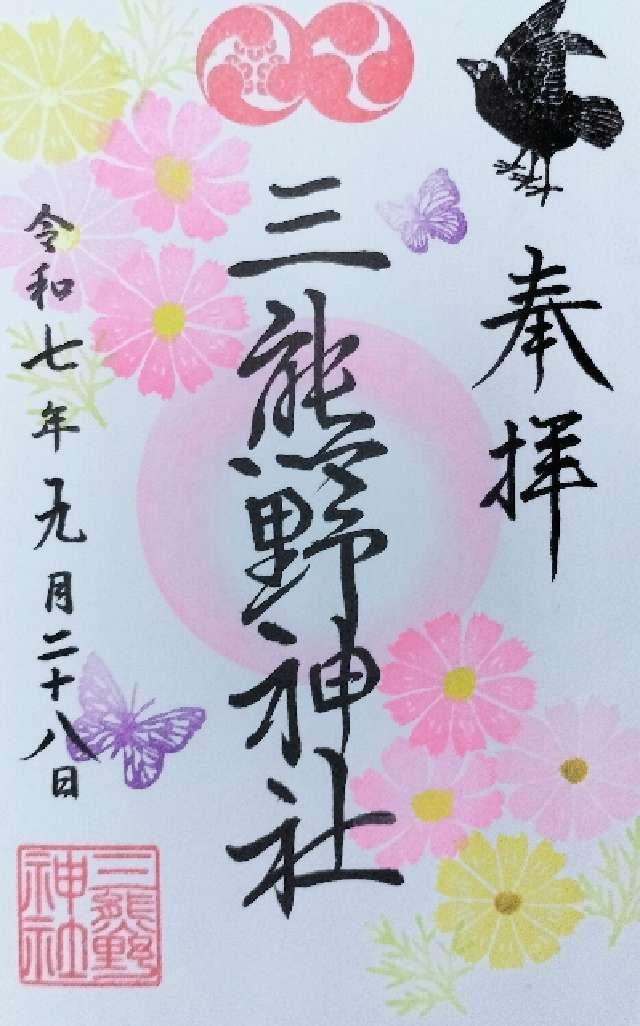 奉拝
三熊野神社
令和七年九月二十八日
三熊野
神社